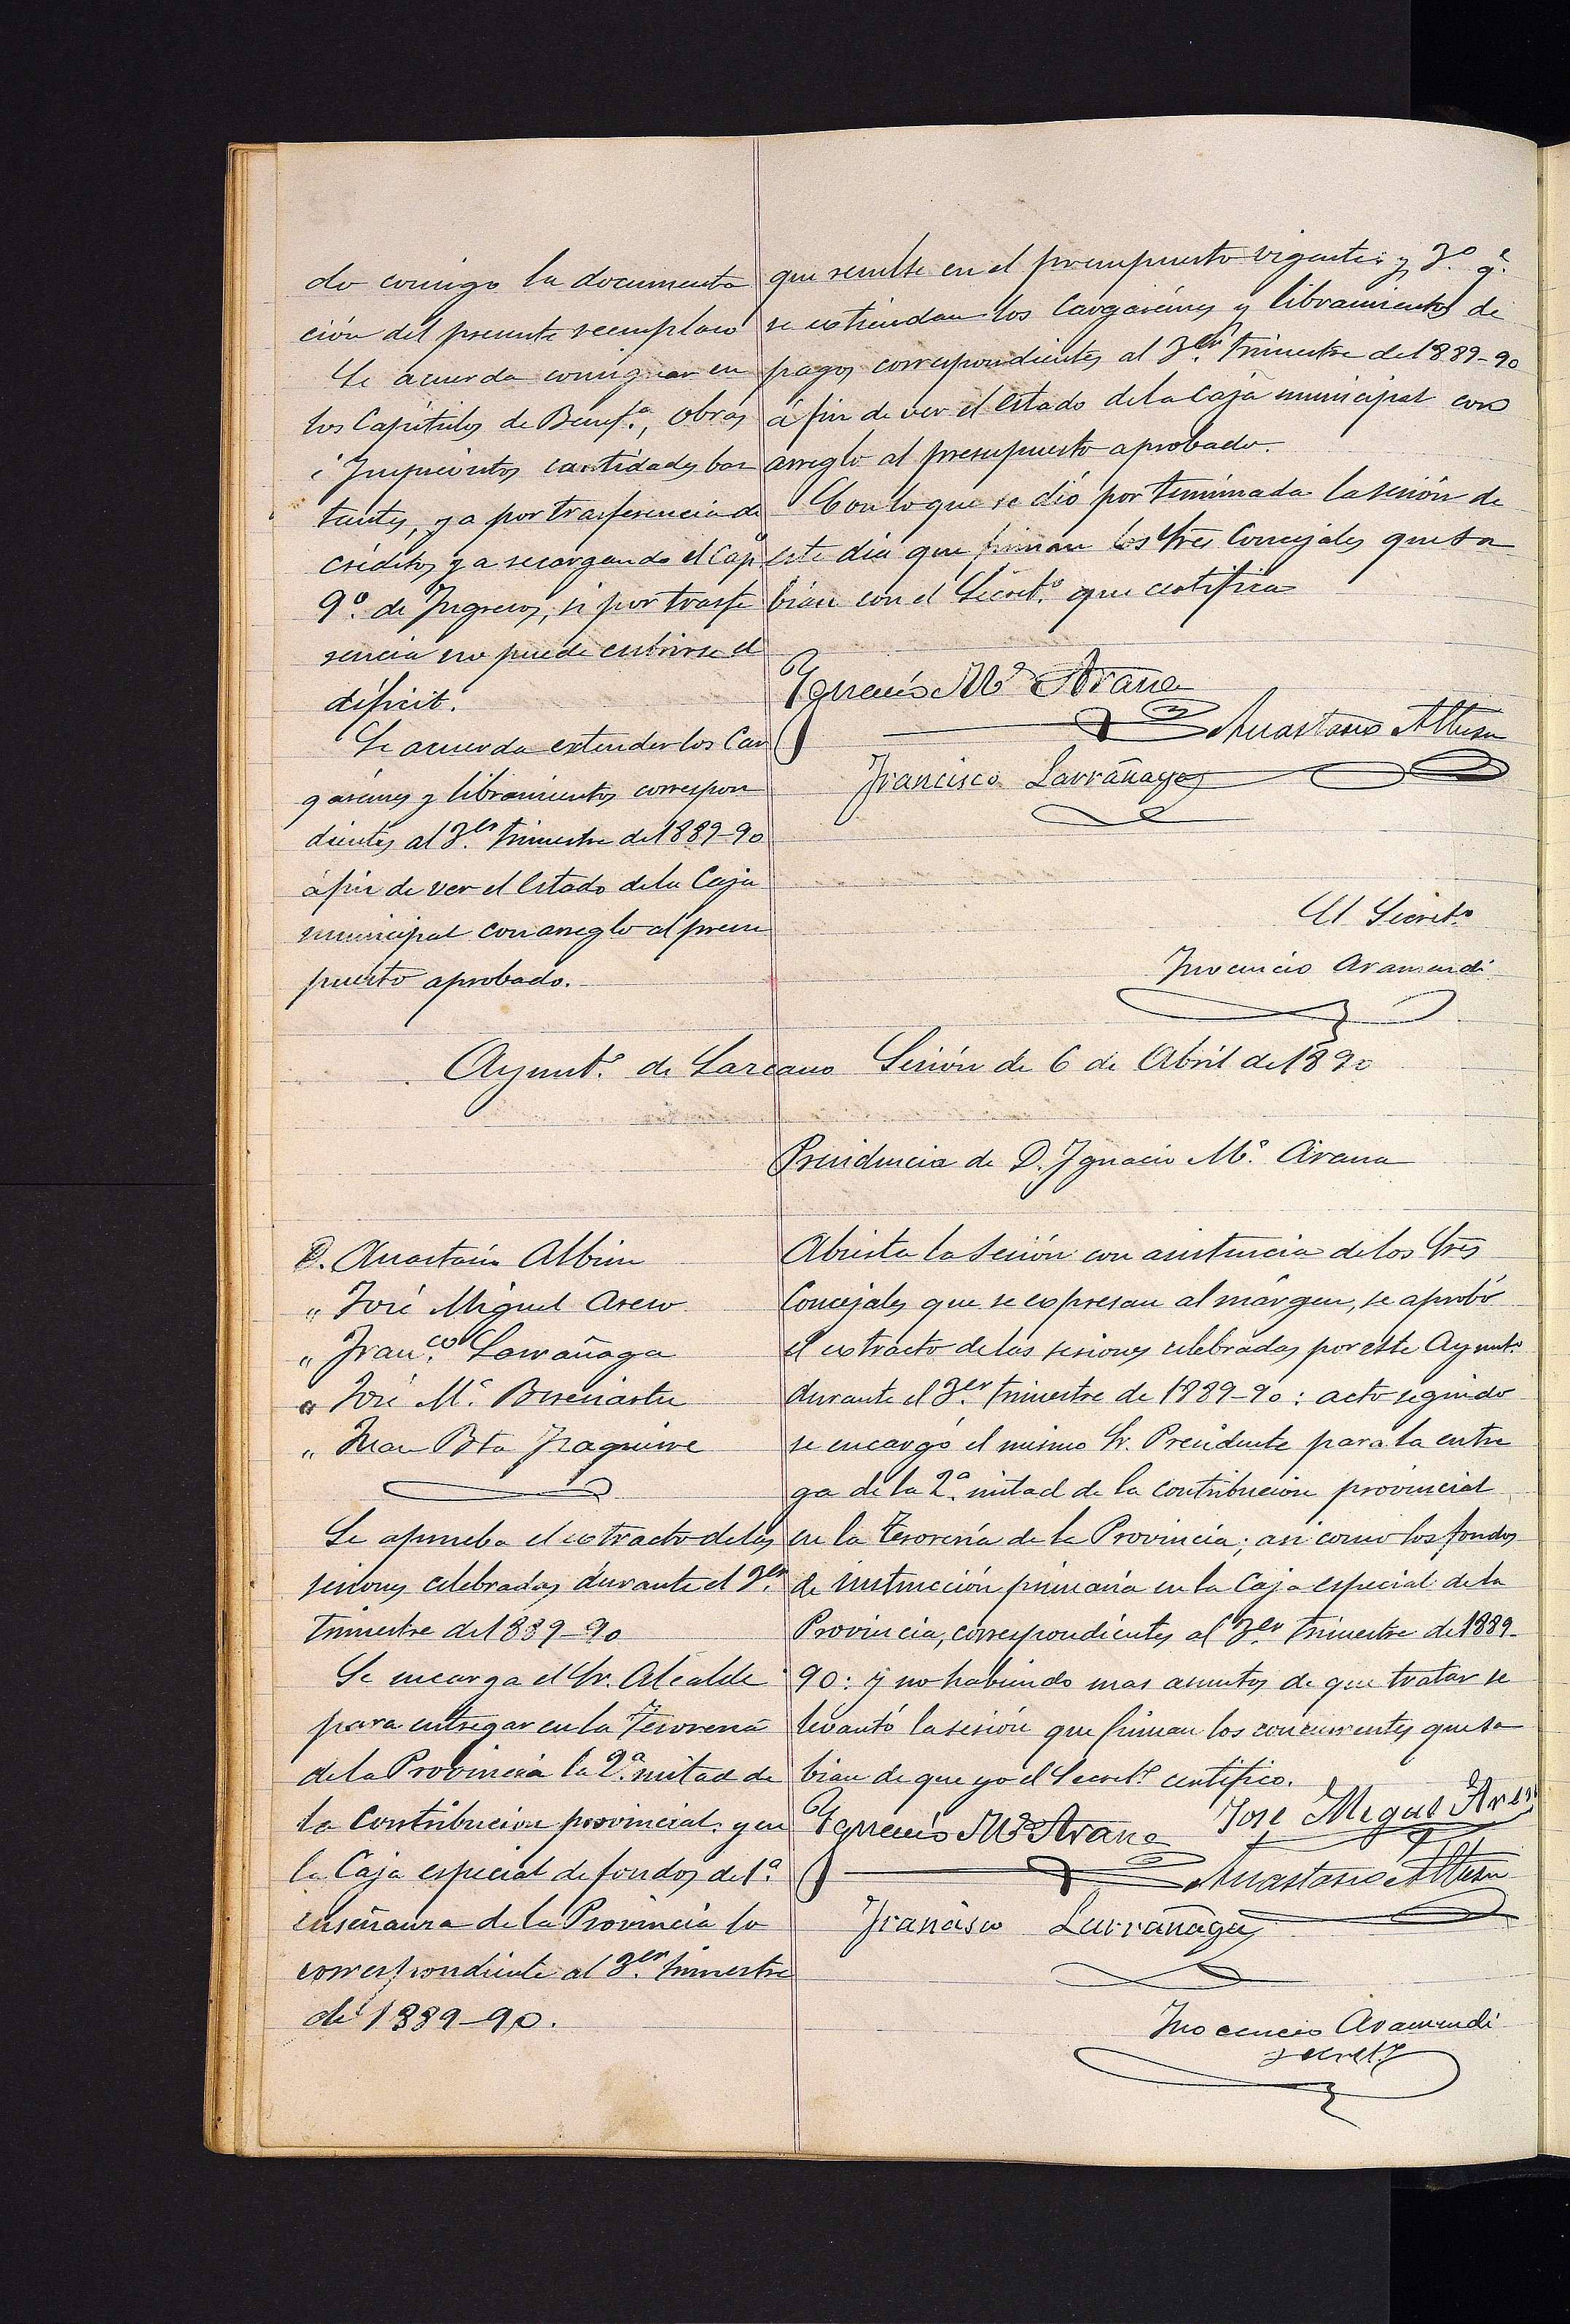 do consigo la documenta
ción del presente reemplazo
Se acuerda consignar en
los Capítulos de Benef.ª, Obras
é Imprevistos cantidades bas
tantes, ya por trasferencia de
créditos ya recargando el Cap.º
9.º de Ingresos, si por trasfe
rencia no puede cubrirse el
déficit.
Se acuerda extender los Car
garémes y libramientos correspon
dientes al 3.er trimestre del 1889-90
á fin de ver el Estado de la Caja
municipal con arreglo al presu
puesto aprobado.
que resulte en el presupuesto vigente: y 3.º q.e
se extiendan los Cargarémes y libramientos de
pagos correspondientes al 3.er trimestre del 1889-90
á fin de ver el Estado de la Caja municipal con
arreglo al presupuesto aprobado.
Con lo que se dió por terminada la sesión de
este dia que firman los Sres Concejales que sa
bian con el Secret.º que certifica
Ygnacio M.ª Arana
Anastasio Albisu
Francisco Larrañaga
El Secret.º
Inocencio Aramendi
Ayunt.º de Lazcano Sesión de 6 de Abril de 1890
Presidencia de D. Ignacio M.ª Arana
D. Anastasio Albisu
" José Miguel Aseso
" Fran.co Larrañaga
" José M.ª
" Juan Bta Izaguirre
Se aprueba el extracto de las
sesiones celebradas durante el 3.er
trimestre del 1889-90
Se encarga el Sr. Alcalde
para entregar en la Tesoreria
de la Provincia la 2.ª mitad de
la Contribucion provincial y en
la Caja especial de fondos de 1.ª
enseñanza de la Provincia lo
correspondiente al 3.er trimestre
de 1889-90.
Abierta la Sesión con asistencia de los Sres
Concejales que se expresan al márgen, se aprobó
el extracto de las sesiones celebradas por este Ayunt.º
durante el 3.er trimestre de 1889-90: acto seguido
se encargó el mismo Sr. Presidente para la entre
ga de la 2.ª mitad de la Contribucion provincial
en la Tesoreria de la Provincia; asi como los fondos
de instrucción primaria en la Caja especial de la
Provincia, correspondientes al 3.er trimestre de 1889-
90: y no habiendo mas asuntos de que tratar se
levantó la sesión que firman los concurrentes que sa
bian de que yo el Secret.º certifico.
Ygnacio M.ª Arana José Miguel
Anastasio Albisu
Francisco Larrañaga
Inocencio Aramendi
Secret.º